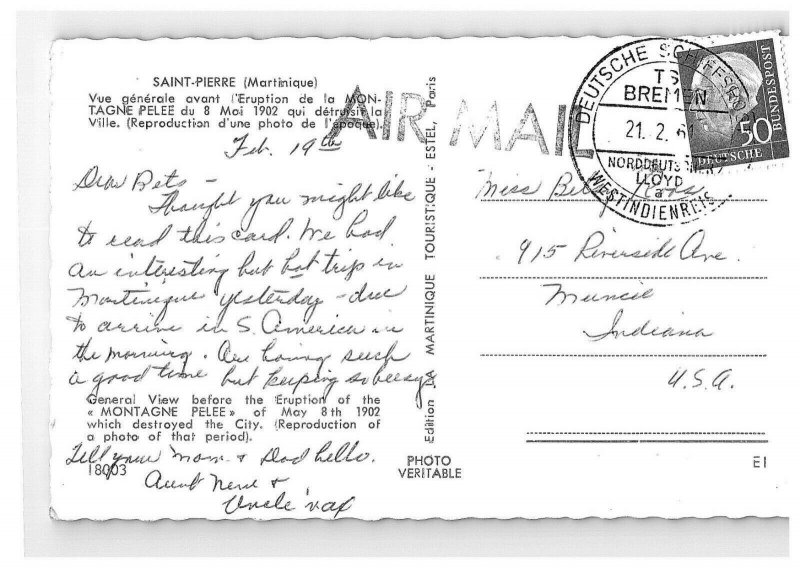 SAINT-PIERRE (Martinique)
Vue générale avant l'Eruption de la MON-
TAGNE PELEE du 8 Mai 1902 qui détruisit la
Ville. (Reproduction d'une photo de l'époque).
Feb. 19th
Dear Bets -
Thought you might like
to read this card. We had
an interesting but hot trip in
Martinique yesterday - due
to arrive in S. America in
the morning. Are having such
a good time but keeping so busy
General View before the Eruption of the
« MONTAGNE PELEE » of May 8th 1902
which destroyed the City. (Reproduction of
a photo of that period).
Tell your Mom & Dad hello.
18003
Aunt &
Uncle
Edition LA MARTINIQUE TOURISTIQUE - ESTEL, Paris
PHOTO
VERITABLE
AIR MAIL
DEUTSCHE
TS
BREMEN
21. 2. 61
NORDDEUTSCHER
LLOYD
a
WESTINDIENREIS
50
DEUTSCHE
BUNDESPOST
Miss Betsy
915 Riverside Ave.
Muncie
Indiana
U.S.A.
E1